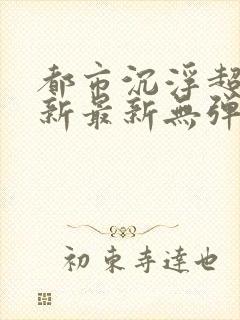 都市沉浮超
新最新無彈
初東寺達也